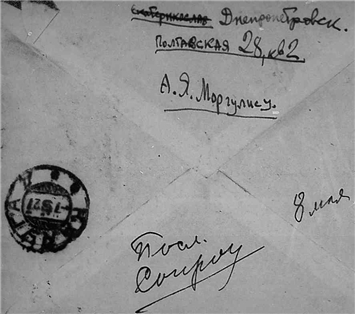 Екатеринослав Днепропетровск.
Полтавская 28, кв 2
А. Я. Моргулису.
8 мая
Посл.